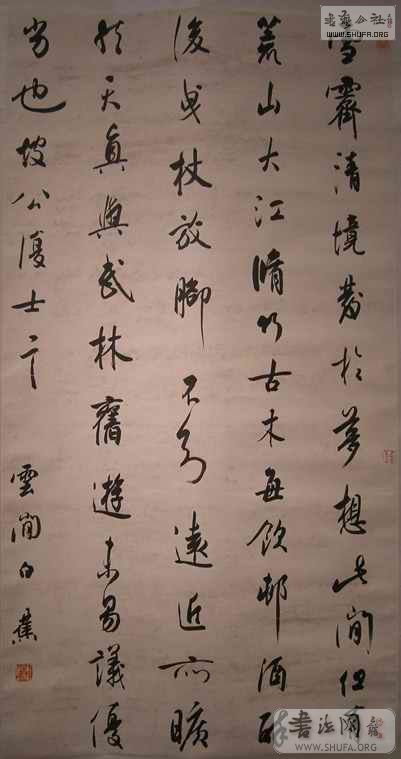 雪霽清境發於夢想此間但有
荒山大江脩竹古木每飲邨酒醉
後曳杖放腳不知遠近亦曠
然天真與武林舊遊未易議優
劣也坡公復士
雲間白蕉
WWW.SHUFA.ORG
書法网
WWW.SHUFA.ORG